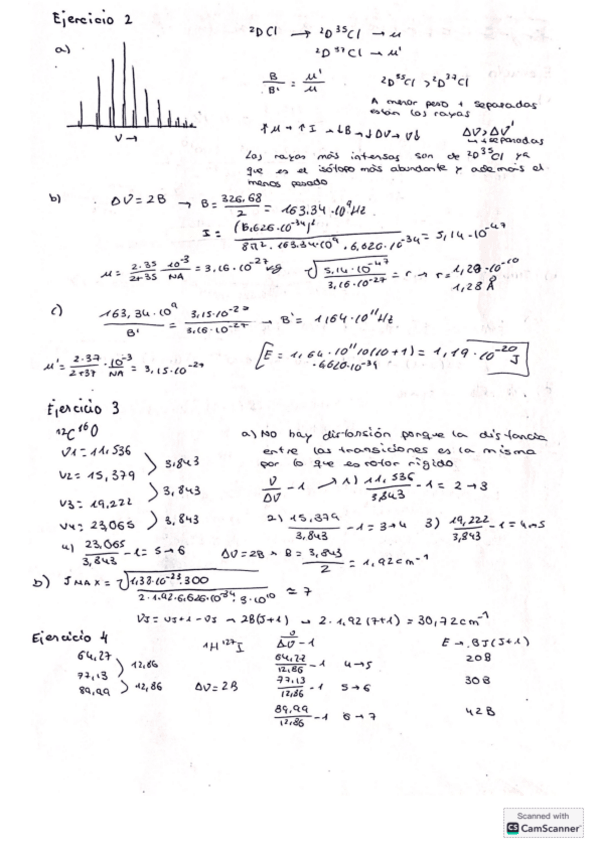 Ejercicio 2
a)
ν →
²DCl → ²D³⁵Cl → μ
²D³⁷Cl → μ'
B/B' = μ'/μ
²D³⁵Cl > ²D³⁷Cl
A menor peso + separadas están las rayas
↑μ → ↑I → ↓B → ↓ΔV → V↓
ΔV > ΔV'
↳ + separadas
Las rayas más intensas son de ²D³⁵Cl ya
que es el isótopo más abundante y además el
menos pesado
b) ΔV = 2B → B = 326.68/2 = 163.34·10⁹ Hz
I = (6,626·10⁻³⁴)²/(8π²·163.34·10⁹·6,626·10⁻³⁴) = 5,14·10⁻⁴⁷
μ = 2·35/(2+35) · 10⁻³/NA = 3,16·10⁻²⁷ kg
√(5,14·10⁻⁴⁷/3,16·10⁻²⁷) = r → r = 1,28·10⁻¹⁰
1,28 Å
c) 163,34·10⁹/B' = 3,15·10⁻²⁷/3,16·10⁻²⁷ → B' = 1,64·10¹¹ Hz
μ' = 2·37/(2+37) · 10⁻³/NA = 3,15·10⁻²⁷
E = 1,64·10¹¹·10(10+1) = 1,19·10⁻²⁰ J
·6,620·10⁻³⁴
Ejercicio 3
¹²C¹⁶O
V1 = 11,536
V2 = 15,379
V3 = 19,222
V4 = 23,065
3,843
3,843
3,843
a) No hay distorsión porque la distancia
entre las transiciones es la misma
por lo que es rotor rígido
ν/Δν - 1 → 1) 11,536/3,843 - 1 = 2→3
2) 15,379/3,843 - 1 = 3→4 3) 19,222/3,843 - 1 = 4→5
4) 23,065/3,843 - 1 = 5→6 ΔV = 2B → B = 3,843/2 = 1,92 cm⁻¹
b) J MAX = √(1,38·10⁻²³·300/(2·1,92·6,626·10⁻³⁴·3·10¹⁰)) ≃ 7
VJ = VJ+1 - VJ → 2B(J+1) → 2·1,92(7+1) = 30,72 cm⁻¹
Ejercicio 4
64,27
77,13
89,99
12,86
12,86
¹H¹²⁷I
ΔV = 2B
ν/Δν - 1
64,27/12,86 - 1 4→5
77,13/12,86 - 1 5→6
89,99/12,86 - 1 6→7
E → BJ(J+1)
20B
30B
42B
Scanned with
CS CamScanner